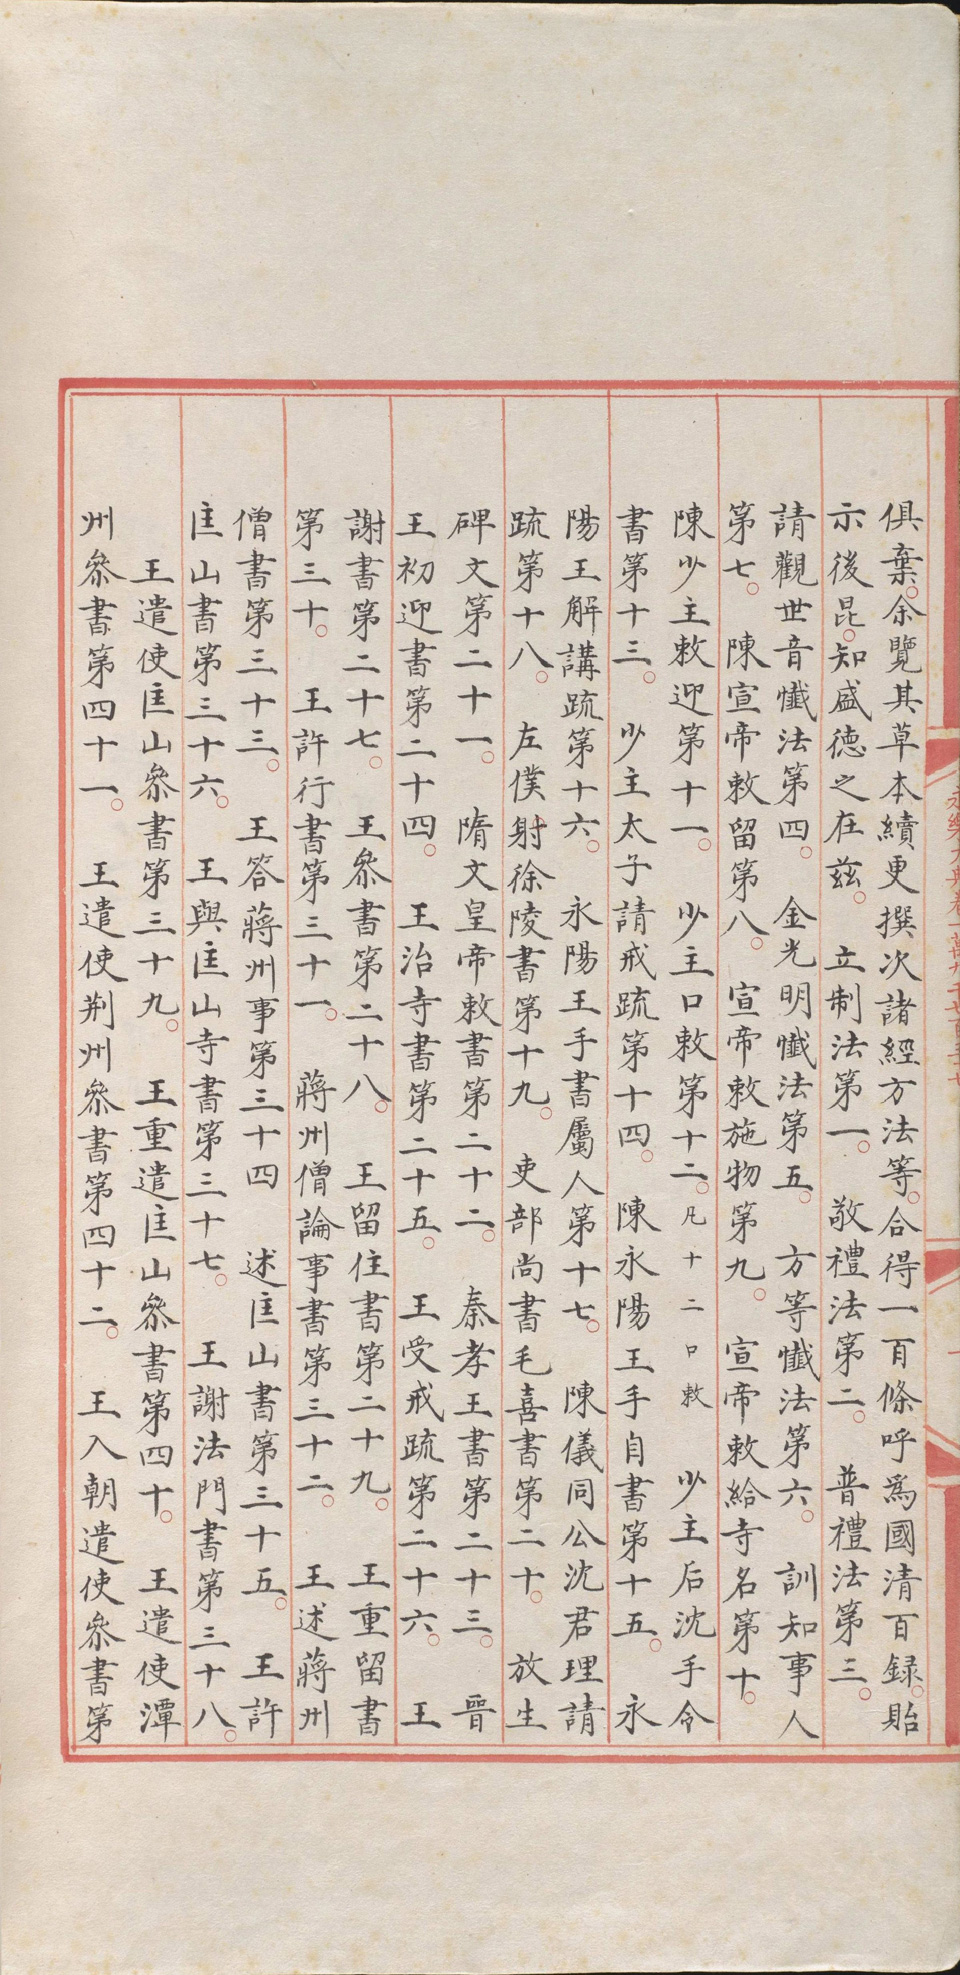 俱棄。余覽其草本續更撰次諸經方法等。合得一百條呼爲國清百録。貽
示後昆。知盛德之在兹。　立制法第一。　敬禮法第二。　普禮法第三。
請觀世音懺法第四。　金光明懺法第五。　方等懺法第六。　訓知事人
第七。　陳宣帝敕留第八。　宣帝敕施物第九。　宣帝敕給寺名第十。
陳少主敕迎第十一。　少主口敕第十二。凡十二口敕　少主后沈手令
書第十三。　少主太子請戒疏第十四。　陳永陽王手自書第十五。　永
陽王解講疏第十六。　永陽王手書屬人第十七。　陳儀同公沈君理請
疏第十八。　左僕射徐陵書第十九。　吏部尚書毛喜書第二十。　放生
碑文第二十一。　隋文皇帝敕書第二十二。　秦孝王書第二十三。　晉
王初迎書第二十四。　王治寺書第二十五。　王受戒疏第二十六。　王
謝書第二十七。　王參書第二十八。　王留住書第二十九。　王重留書
第三十。　王許行書第三十一。　蔣州僧論事書第三十二。　王述蔣州
僧書第三十三。　王答蔣州事第三十四　述匡山書第三十五。　王許
匡山書第三十六。　王與匡山寺書第三十七。　王謝法門書第三十八。
王遣使匡山參書第三十九。　王重遣匡山參書第四十。　王遣使潭
州參書第四十一。　王遣使荆州參書第四十二。　王入朝遣使參書第